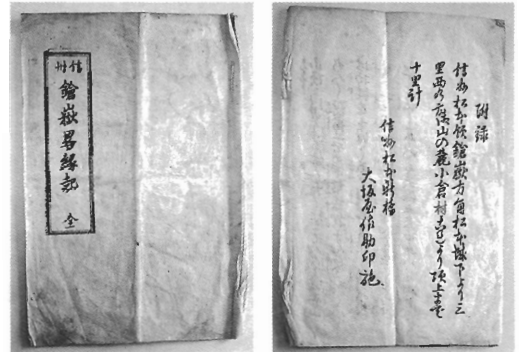 信州
鎗嶽畧縁記 全
附録
信州松本領鎗嶽方角松本城下より三
里西の方
山の麓小倉村
より頂上まで
十里計
信州松本新橋
大坂屋佐助印施